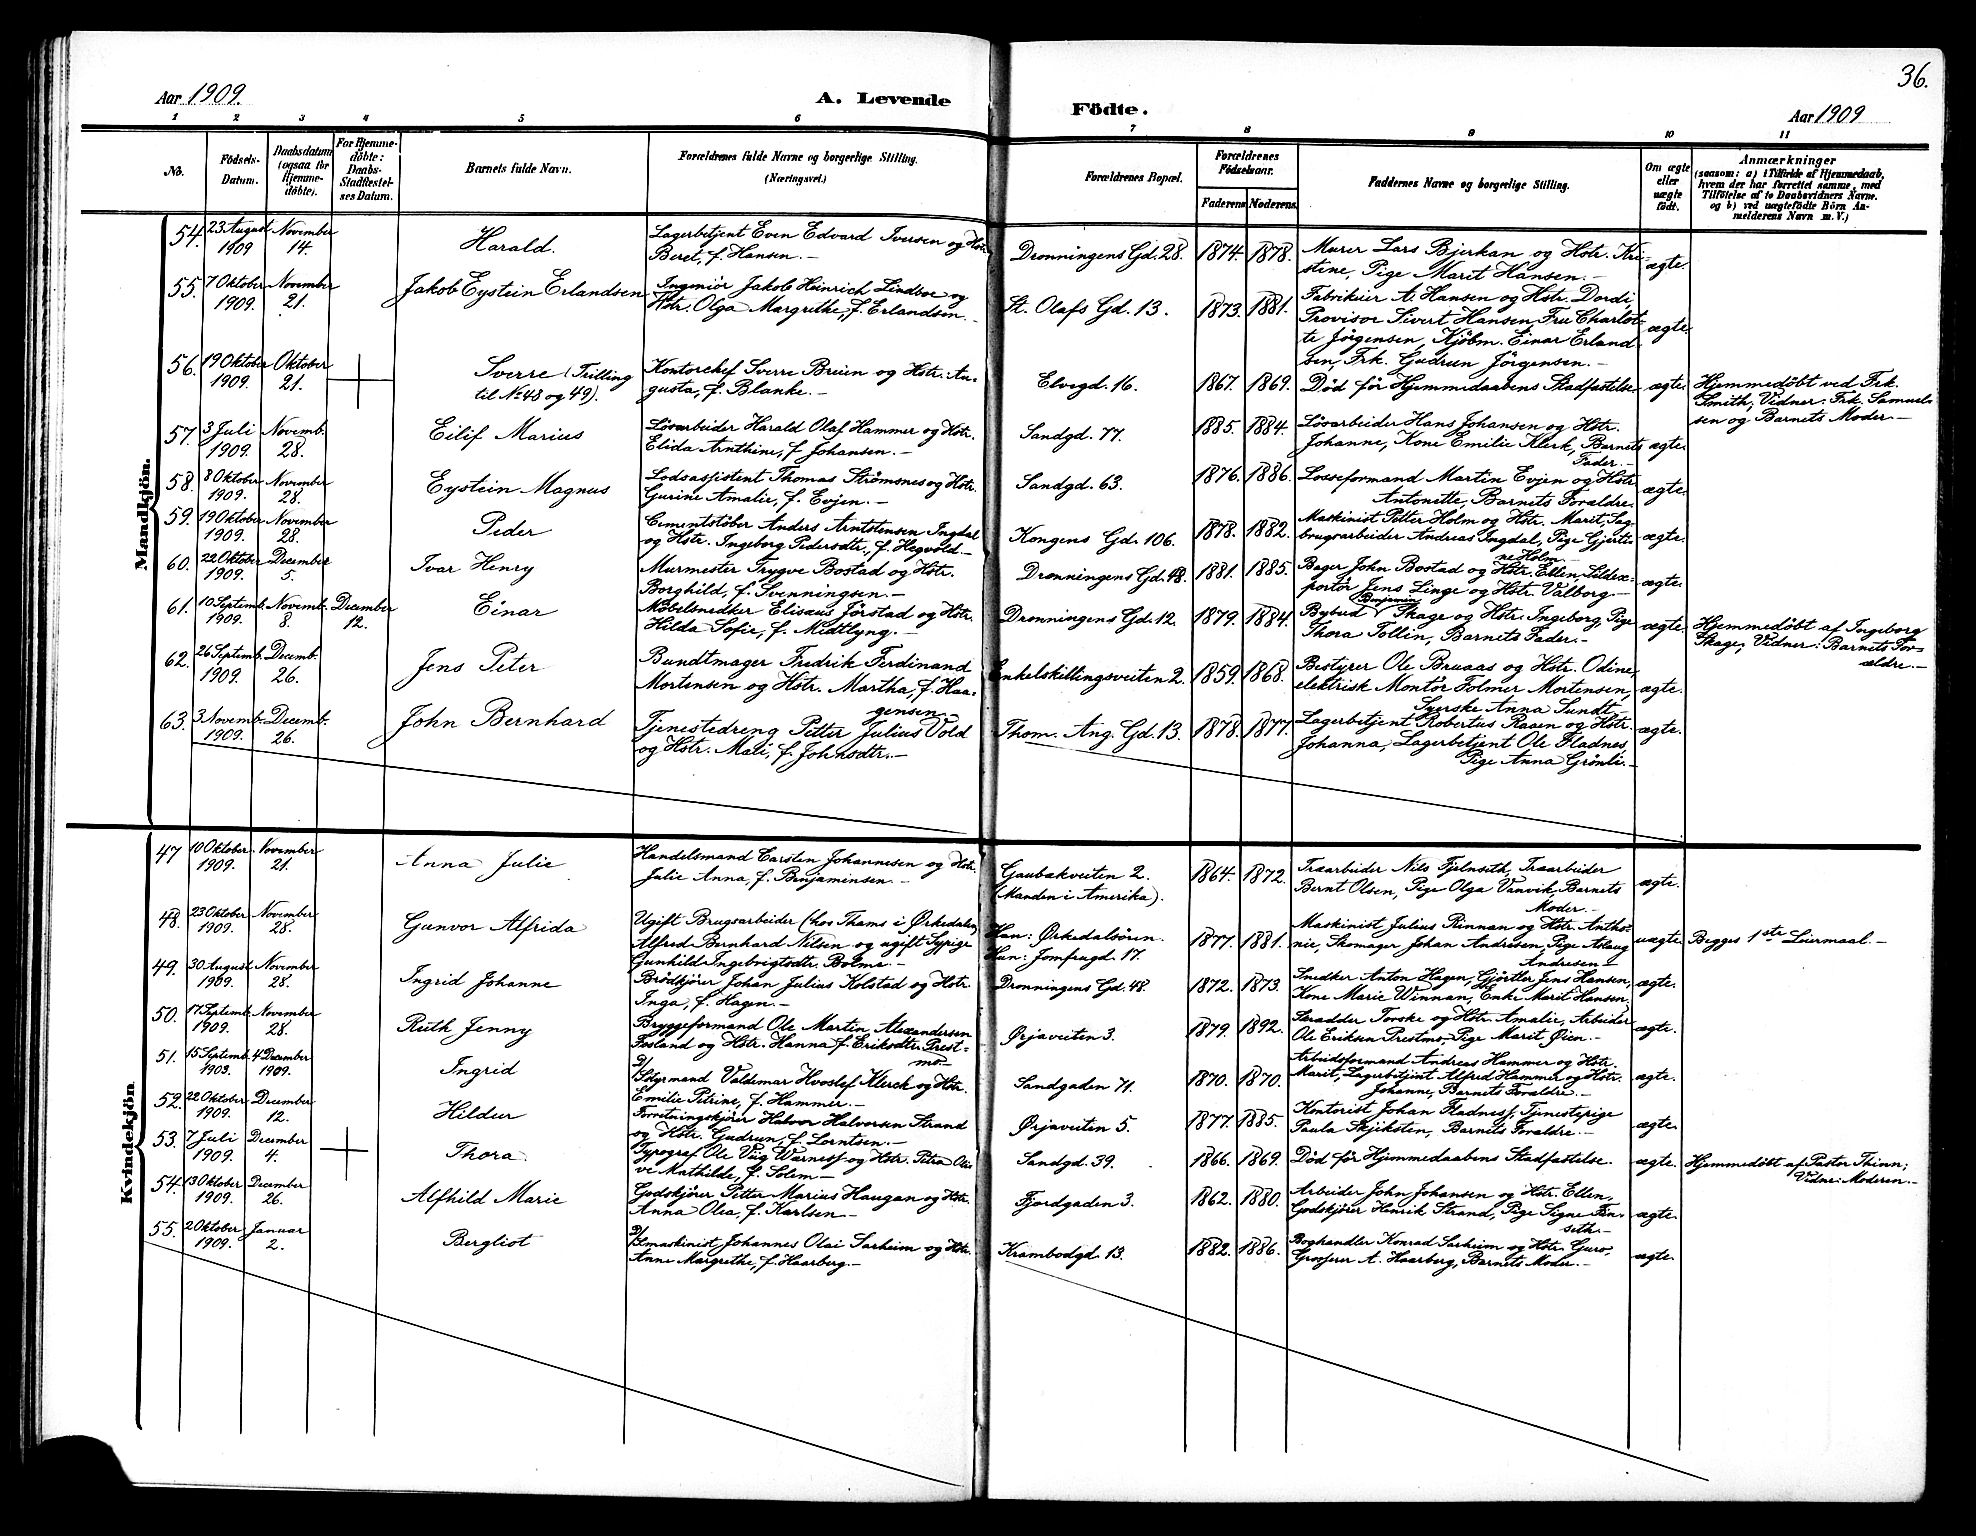 36.
Aar 1909.
A. Levende
Födte.
Aar 1909
1 2 3 4 5 6 7 8 9 10 11
No.
Födsels-
Datum.
Daabsdatum
(ogsaa for
Hjemme-
döbte).
For Hjemme-
döbte:
Daabs-
Stadfæstel-
ses Datum.
Barnets fulde Navn.
Forældrenes fulde Navne og borgerlige Stilling.
(Næringsvei.)
Forældrenes Bopæl.
Forældrenes
Födselsaar.
Faderens
Moderens.
Faddernes Navne og borgerlige Stilling.
Om ægte
eller
uægte
födt.
Anmærkninger
(saasom: a) i Tilfælde af Hjemmedaab,
hvem der har forrettet samme, med
Tilföielse af to Daabsvidners Navne.
og b) ved uægtefödte Börn An-
melderens Navn m. V.)
Mandkjön.
54. 23 August
1909
November
14.
Harald.
Lagerbetjent Even Edvard Iversen og Hstr.
Beret, f. Hansen. –
Dronningens Gd. 28.
1874.
1878.
Murer Lars Bjerkan og Hstr. Kri-
stine, Pige Marit Hansen. –
ægte.
55. 7 Oktober
1909.
November
21.
Jakob Eystein Erlandsen
Ingeniör Jakob Heinrich Lindboe og
Hstr. Olga Margrethe, f. Erlandsen. –
St. Olafs Gd. 13.
1873.
1881.
Fabrikeier A. Hansen og Hstr. Dordi,
Provisor Sivert Hansen, Fru Charlot-
te Jörgensen, Kjöbm. Einar Erland-
sen, Frk. Gudrun Jörgensen. –
ægte.
56. 19 Oktober
1909.
Oktober
21.
Sverre (Trilling
til No 48 og 49).
Kontorchef Sverre Bruun og Hstr. Au-
gusta, f. Blanke. –
Elvegd. 16.
1867.
1869.
Död før Hjemmedaabens Stadfæstelse.
ægte.
Hjemmedöbt ved Frk.
Smith, Vidner: Frk. Samuel-
sen og Barnets Moder. –
57. 3 Juli
1909.
Novemb.
28.
Eilif Marius
Lösarbeider Harald Olaf Hammer og Hstr.
Elida Arnthine, f. Johansen. –
Sandgd. 77.
1885.
1884.
Lösarbeider Hans Johansen og Hstr.
Johanne, Kone Emilie Klerk, Barnets
Fader. –
ægte.
58. 8 Oktober
1909.
November
28.
Eystein Magnus
Lodsassistent Thomas Strömsnes og Hstr.
Gurine Amalie, f. Evjen. –
Sandgd. 63.
1876.
1886.
Losseformand Martin Evjen og Hstr.
Antonette, Barnets Forældre.
ægte.
59. 19 Oktober
1909.
November
28.
Peder
Cementstöber Anders Arntsen Ingdal
og Hstr. Ingeborg Pedersdtr., f. Hegvold. –
Kongens Gd. 106.
1878.
1882.
Maskinist Petter Holm og Hstr. Marit, Sag-
brugsarbeider Andreas Ingdal, Pige Gjerti-
ne Holm. –
ægte.
60. 22 Oktober
1909.
December
5.
Ivar Henry
Murmester Trygve Bostad og Hstr.
Borghild, f. Svenningsen. –
Dronningens Gd. 48.
1881.
1885.
Bager John Bostad og Hstr. Ellen, Sildex-
portör Jens Linge og Hstr. Valborg. –
ægte.
61. 10 Septemb.
1909.
Novemb.
8.
December
12.
Einar
Möbelsnedker Elisæus Jörstad og Hstr.
Hilda Sofie, f. Midtlyng. –
Dronningens Gd. 12
1879.
1884.
Benjamin
Bybud Skage og Hstr. Ingeborg, Pige
Thora Tollin, Barnets Fader. –
ægte.
Hjemmedöbt af Ingeborg
Skage; Vidner: Barnets For-
ældre. –
62. 26 Septemb.
1909.
Decemb.
26.
Jens Peter
Bundtmager Fredrik Ferdinand
Mortensen og Hstr. Martha, f. Haa-
gensen. –
Enkelskillingsveiten 2.
1859.
1868.
Bestyrer Ole Bruaas og Hstr. Odine,
elektrisk Montör Folmer Mortensen,
Syerske Anna Sundt –
ægte.
63. 3 Novemb.
1909.
Decemb.
26.
John Bernhard
Tjenestedreng Petter Julius Vold
og Hstr. Mari, f. Johnsdtr. –
Thom. Ang. Gd. 13.
1878.
1877.
Lagerbetjent Robertus Raaen og Hstr.
Johanna, Lagerbetjent Ole Fladnes,
Pige Anna Grönli. –
ægte.
Kvindekjön
47 10 Oktober
1909.
November
21.
Anna Julie
Handelsmand Carsten Johannesen og Hstr.
Julie Anna, f. Benjaminsen. –
Gaubakveiten 2.
(Manden i Amerika).
1864.
1872.
Træarbeider Nils Fjelnseth, Træarbeider
Bernt Olsen, Pige Olga Vanvik, Barnets
Moder. –
ægte.
48. 23 Oktober
1909.
November
28.
Gunvor Alfrida
Ugift Brugsarbeider (hos Thams i Ørkedalen)
Alfred Bernhard Nilsen og ugift Sypige
Gunhild Ingebrigtsdtr. Bolme. –
Han: Ørkedalsören.
Hun: Jomfrugd. 17.
1877.
1881.
Maskinist Julius Rinnan og Hstr. Antho-
nie, Skomager Johan Andresen, Pige Aslaug
Andresen –
uægte.
Begges 1ste Leiermaal. –
49. 30 August
1909.
November
28.
Ingrid Johanne
Brödkjörer Johan Julius Kolstad og Hstr.
Inga, f. Hagen. –
Dronningens Gd. 48.
1872.
1873.
Snedker Anton Hagen, Gjörtler Jens Hansen,
Kone Marie Winnan, Enke Marit Hansen.
ægte.
50. 17 Septemb.
1909.
November
28.
Ruth Jenny
Bryggeformand Ole Martin Alexandersen
Fosland og Hstr. Hanna, f. Eriksdtr. Prest-
mo. –
Ørjaveiten 3.
1879.
1892.
Skrædder Torske og Hstr. Amalie, Arbeider
Ole Eriksen Prestmo, Pige Marit Øien. –
ægte.
51. 15 Septemb.
1903.
4 December
1909.
Ingrid
Styrmand Valdemar Hvoslef Klerck og Hstr.
Emilie Petrine, f. Hammer. –
Sandgaden 71.
1870.
1870.
Arbeidsformand Andreas Hammer og Hstr.
Marit, Lagerbetjent Alfred Hammer og Hstr.
Johanne, Barnets Forældre. –
ægte.
52. 22 Oktober
1909.
December
12.
Hildur
Forretningskjörer Halvor Halvorsen Strand
og Hstr. Gudrun, f. Lorntsen. –
Ørjaveiten 5.
1877.
1885.
Kontorist Johan Fladness, Tjenestepige
Paula Skjiksten, Barnets Forældre. –
ægte.
53. 7 Juli
1909.
December
4.
Thora.
Typograf Ole Viig Warness og Hstr. Petra Oli-
ve Mathilde, f. Solem. –
Sandgd. 39.
1866.
1869.
Död før Hjemmedaabens Stadfæstelse.
ægte.
Hjemmedöbt af Pastor Thinn;
Vidne: Moderen. –
54. 13 Oktober
1909.
December
26.
Alfhild Marie
Godskjörer Petter Marius Haugan og Hstr.
Anna Olea, f. Karlsen. –
Fjordgaden 3.
1862.
1880.
Arbeider John Johansen og Hstr. Ellen,
Godskjörer Henrik Strand, Pige Signe Fin-
seth. –
ægte.
55. 2 Oktober
1909.
Januar
2.
Bergliot
maskinist Johannes Olai Sarheim og Hstr.
Anne Margrethe, f. Haarberg. –
Krambodgd. 13.
1882.
1886.
Boghandler Konrad Sarheim og Hstr. Guro,
Grosserer A. Haarberg, Barnets Moder. –
ægte.